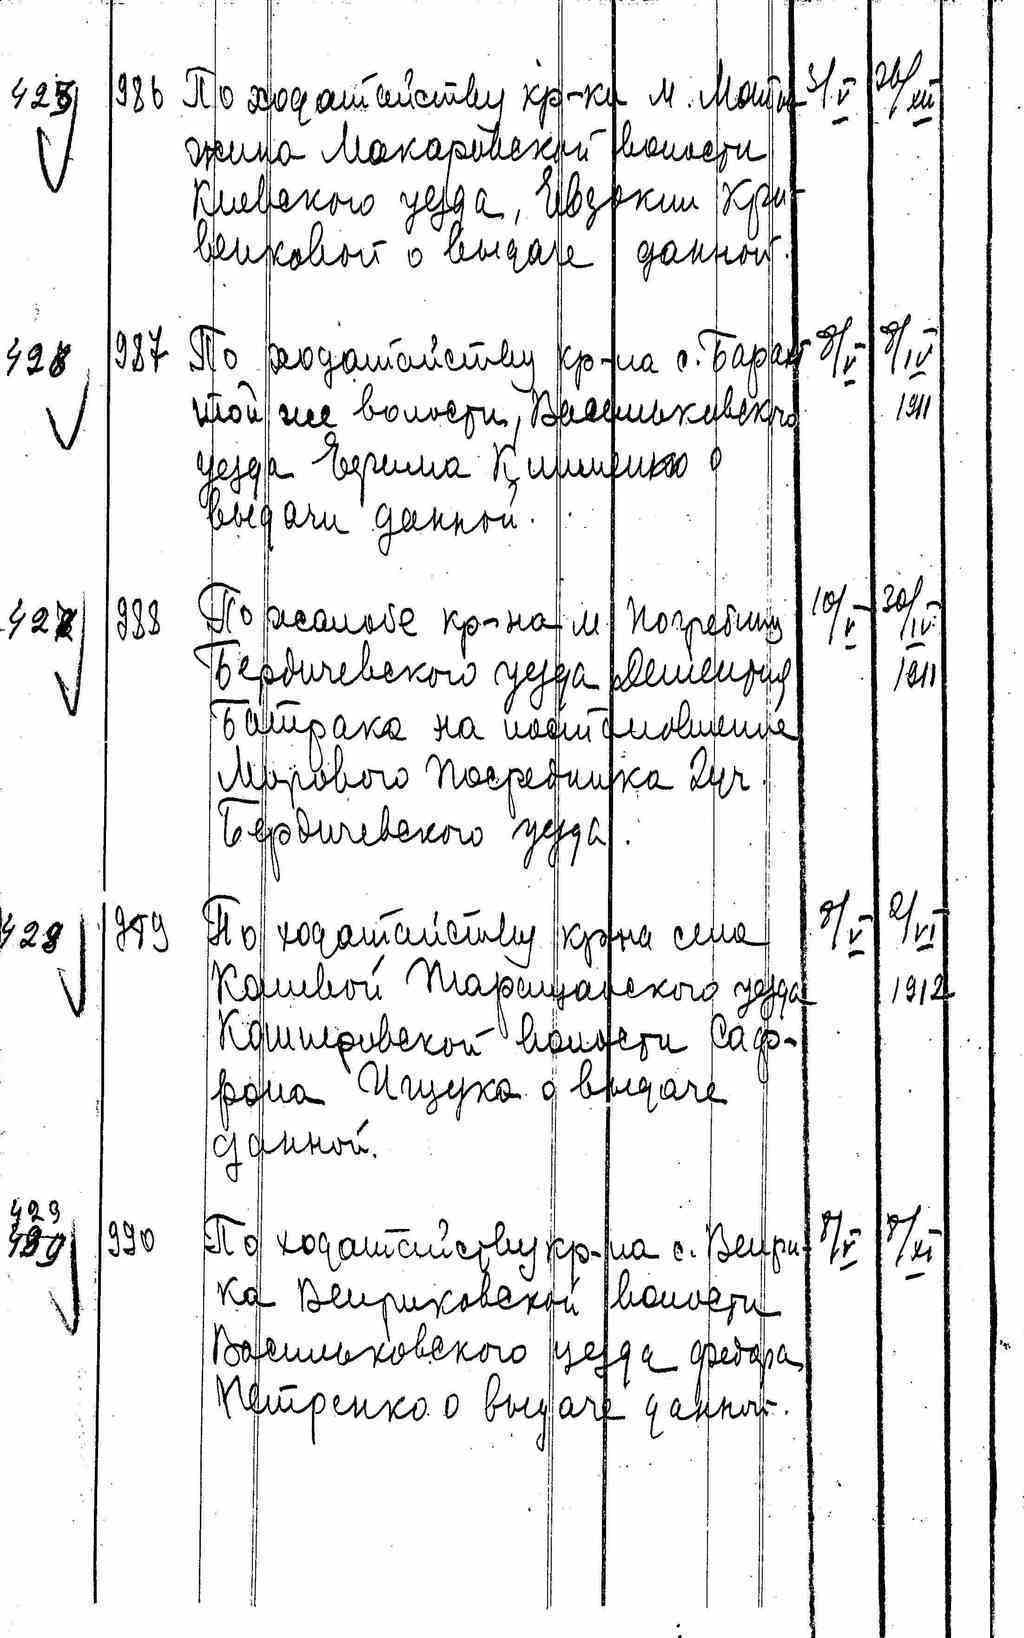 425 986 По ходатайству кр-ки м. Моты- 3/V 20/XII
жина Макаровской волости
Киевского уезда, Евдокии Кри-
венковой о выдаче данной.
426 987 По ходатайству кр-на с. Барахт 8/V 8/IV
той же волости, Васильковского 1911
уезда Ефима Клименко о
выдачи данной.
427 988 По жалобе кр-на м. Погребищ 10/V 20/IV
Бердичевского уезда 1911
Батрака на постановление
Мирового Посредника 2 уч.
Бердичевского уезда.
428 989 По ходатайству кр-на села 8/V 2/VI
Кошевой Таращанского уезда 1912
Кошеровской волости Саф-
рона Ищука о выдаче
данной.
429
430 990 По ходатайству кр-на с. Вепри- 8/V 8/XI
ка Веприковской волости
Васильковского уезда Федора
Петренко о выдаче данной.